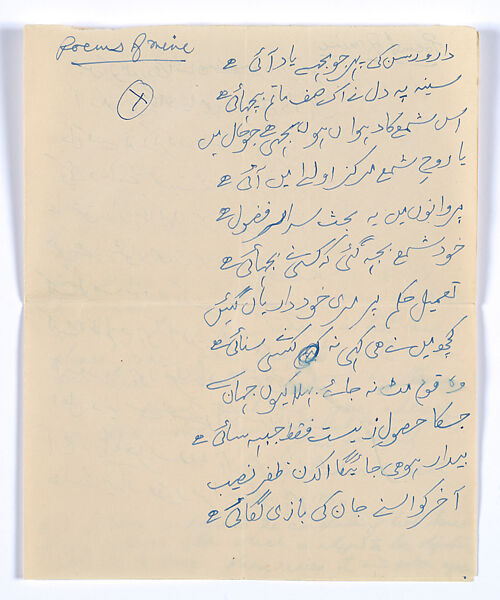 Poems of mine
X
دار و رسن کی پھر جو مجھے یاد آئی ہے
سینہ پہ دل نے اک صف ماتم بچھائی ہے
اس شمع کا دہواں ہوں بجھی ہے جو حال میں
یا روح شمع مرکز اولےٰ میں آئی ہے
پروانوں میں یہ بحث سراسر فضول ہے
خود شمع بجھ گئی کہ کسی نے بجھائی ہے
تعمیل حکم پر مری خود داریاں گئیں
کچھ میں نے ہی کہی نہ کسی نے سنائی ہے
وہ قوم مٹ نہ جائے بھلا کیوں جہان سے
جسکا حصول زیست فقط جبہہ سائی ہے
بیدار ہو ہی جائیگا اکدن ظفر نصیب
آخر کو اسنے جان کی بازی لگائی ہے